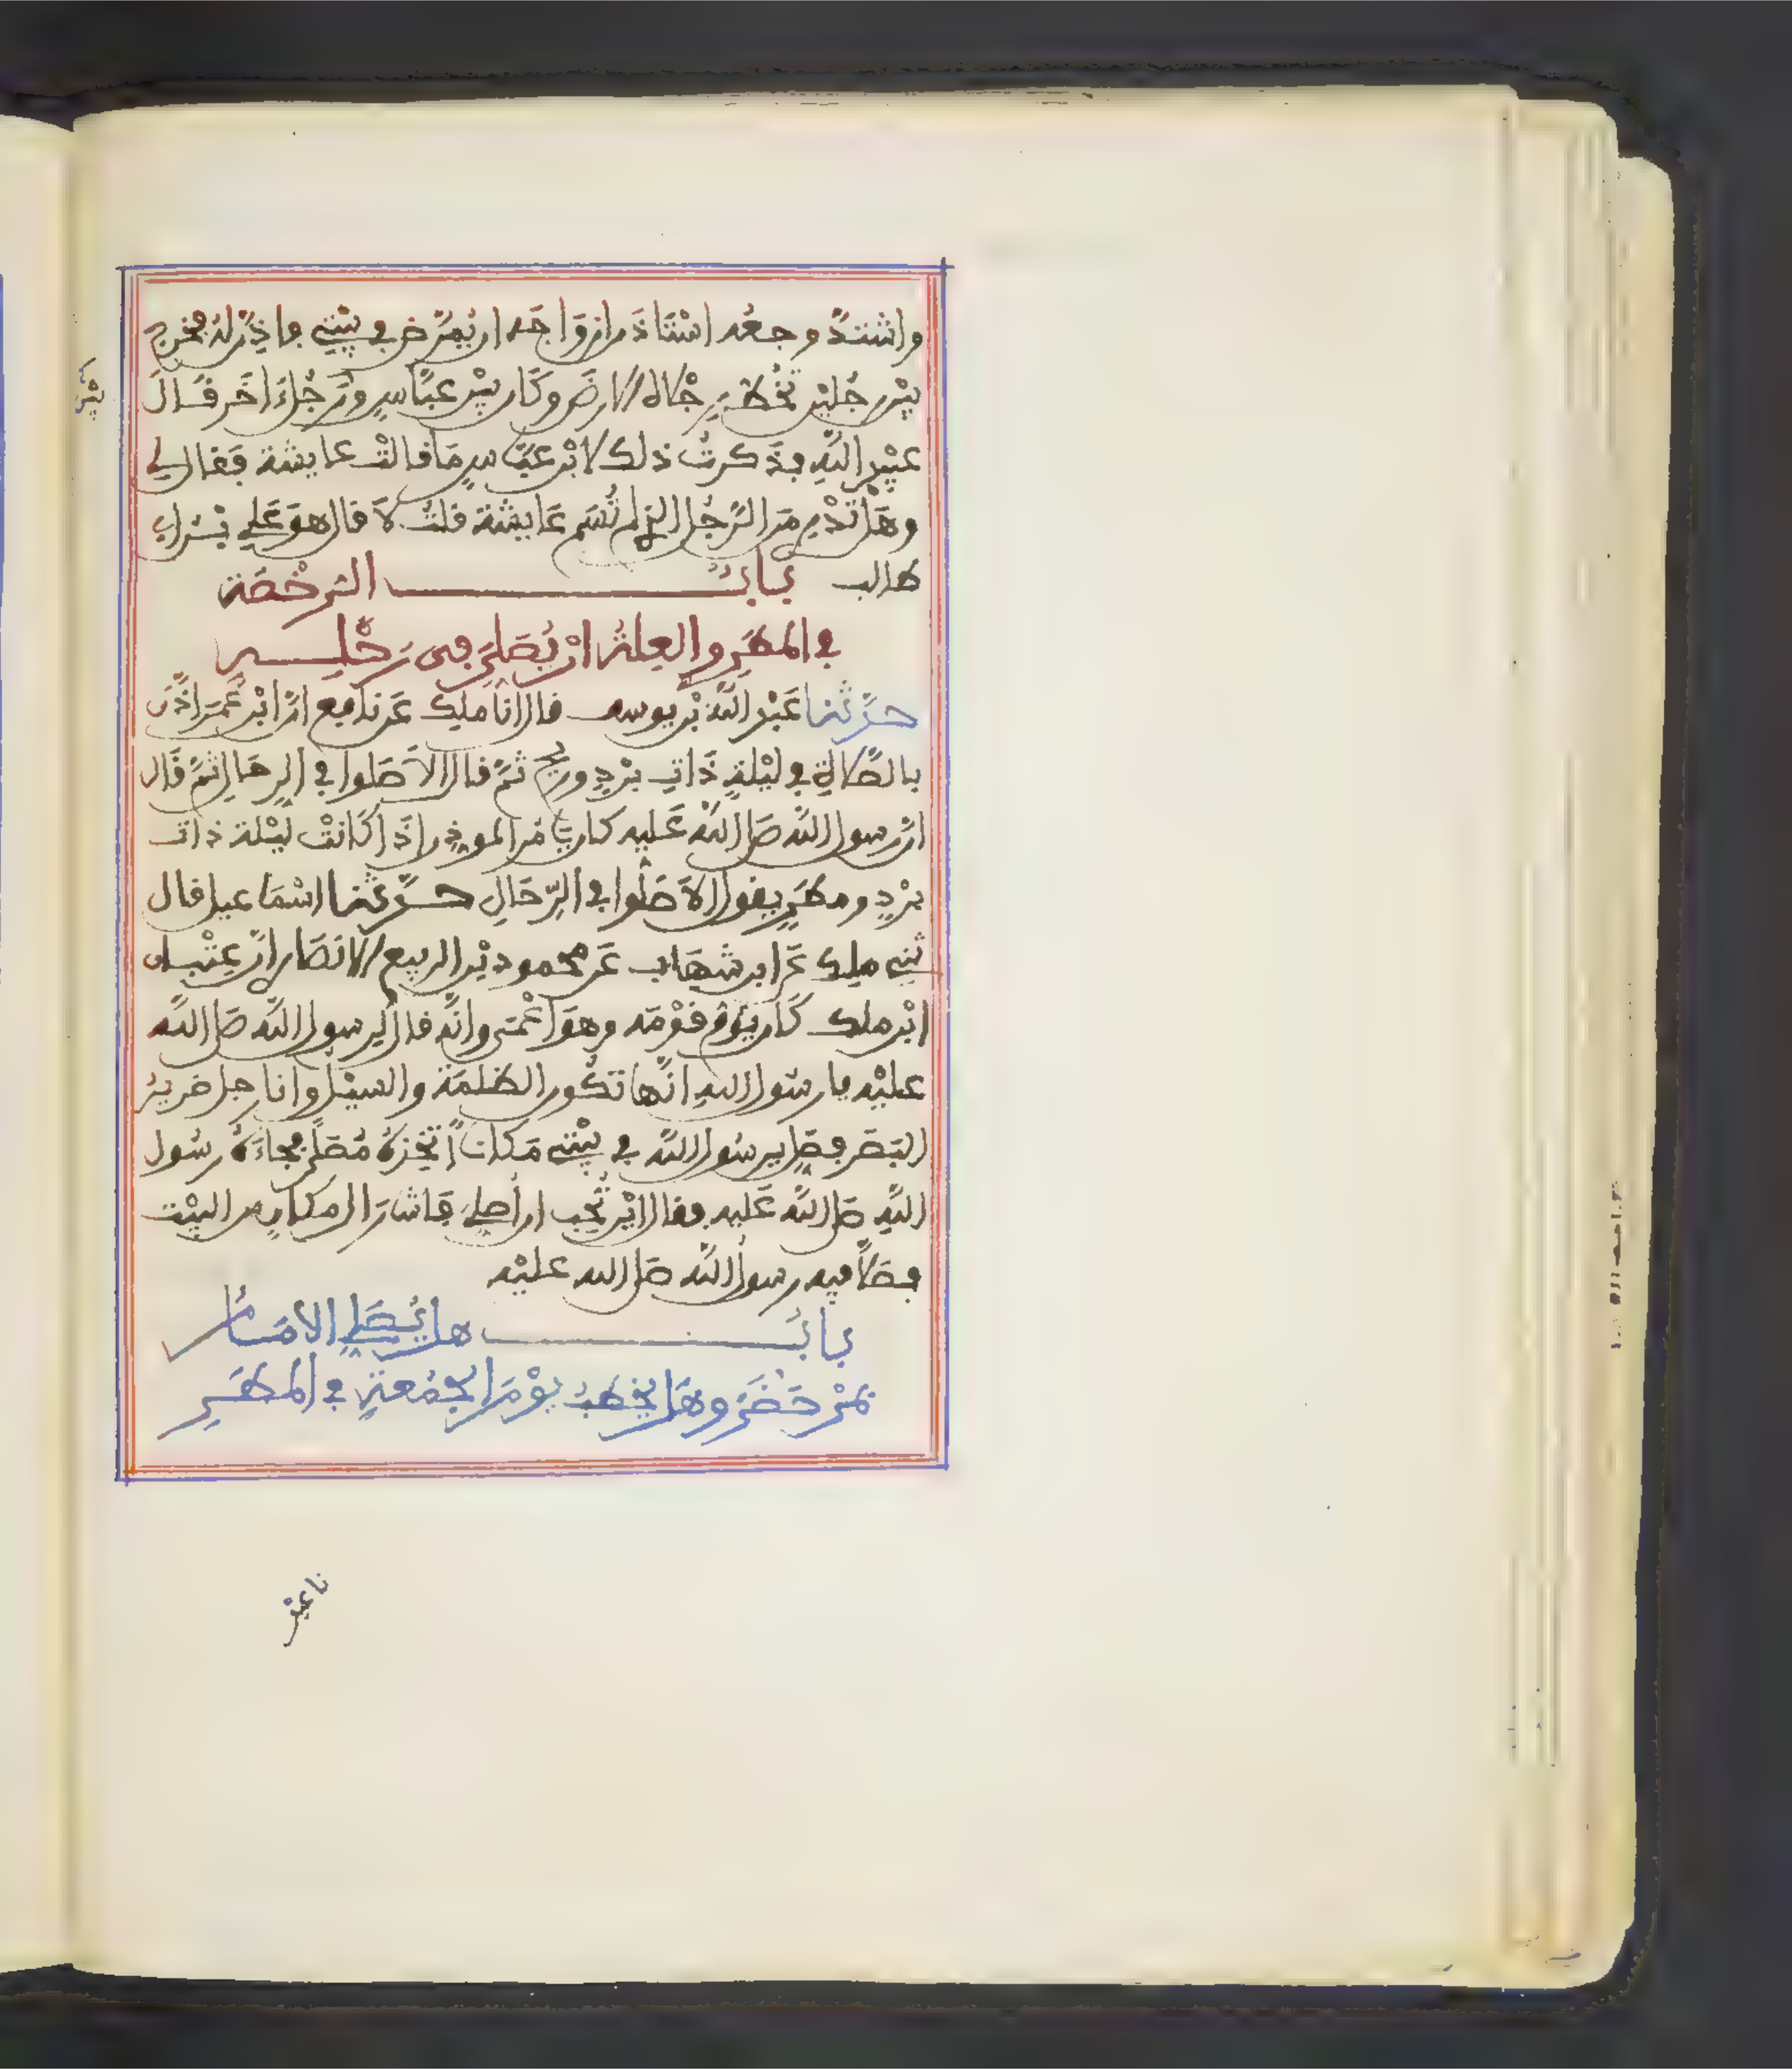 واشتدّ وجعه استاذن ازواجه ان يمرّض في بيتي فاذنّ له فخرج
بين رجلين تخط رجلاه الارض وكان بين عبّاس ورجل اخر قال
عبيد الله فذكرت ذلك لابن عبّاس ما قالت عايشة فقال لي
وهل تدري من الرّجل الذي لم تسم عايشة قلت لا قال هو علي بن ابي
طالب باب الرخصة
في المطر والعلة ان يصلي في رحله
حدّثنا عبد الله بن يوسف قال انا ملك عن نافع انّ ابن عمر اذّن
بالصّلاة في ليلة ذات برد وريح ثمّ قال الا صلوا في الرحال ثمّ قال
انّ رسول الله صلى الله عليه كان يامر الموذن اذا كانت ليلة ذات
برد ومطر يقول الا صلوا في الرّحال حدّثنا اسماعيل قال
ثني ملك عن ابن شهاب عن محمود بن الربيع الانصاري انّ عتبان
ابن ملك كان يؤم قومه وهو اعمى وانّه قال لرسول الله صلى الله
عليه يا رسول الله انّها تكون الظلمة والسيل وانا رجل ضرير
البصر فصل يرسول الله في بيتي مكانا اتخذه مصلّى فجاءه رسول
الله صلى الله عليه فقال اين تحب ان أصلي فاشار الى مكان من البيت
فصلّا فيه رسول الله صلى الله عليه
باب هل يصلي الامام
بمن حضر وهل يخطب يوم الجمعة في المطر